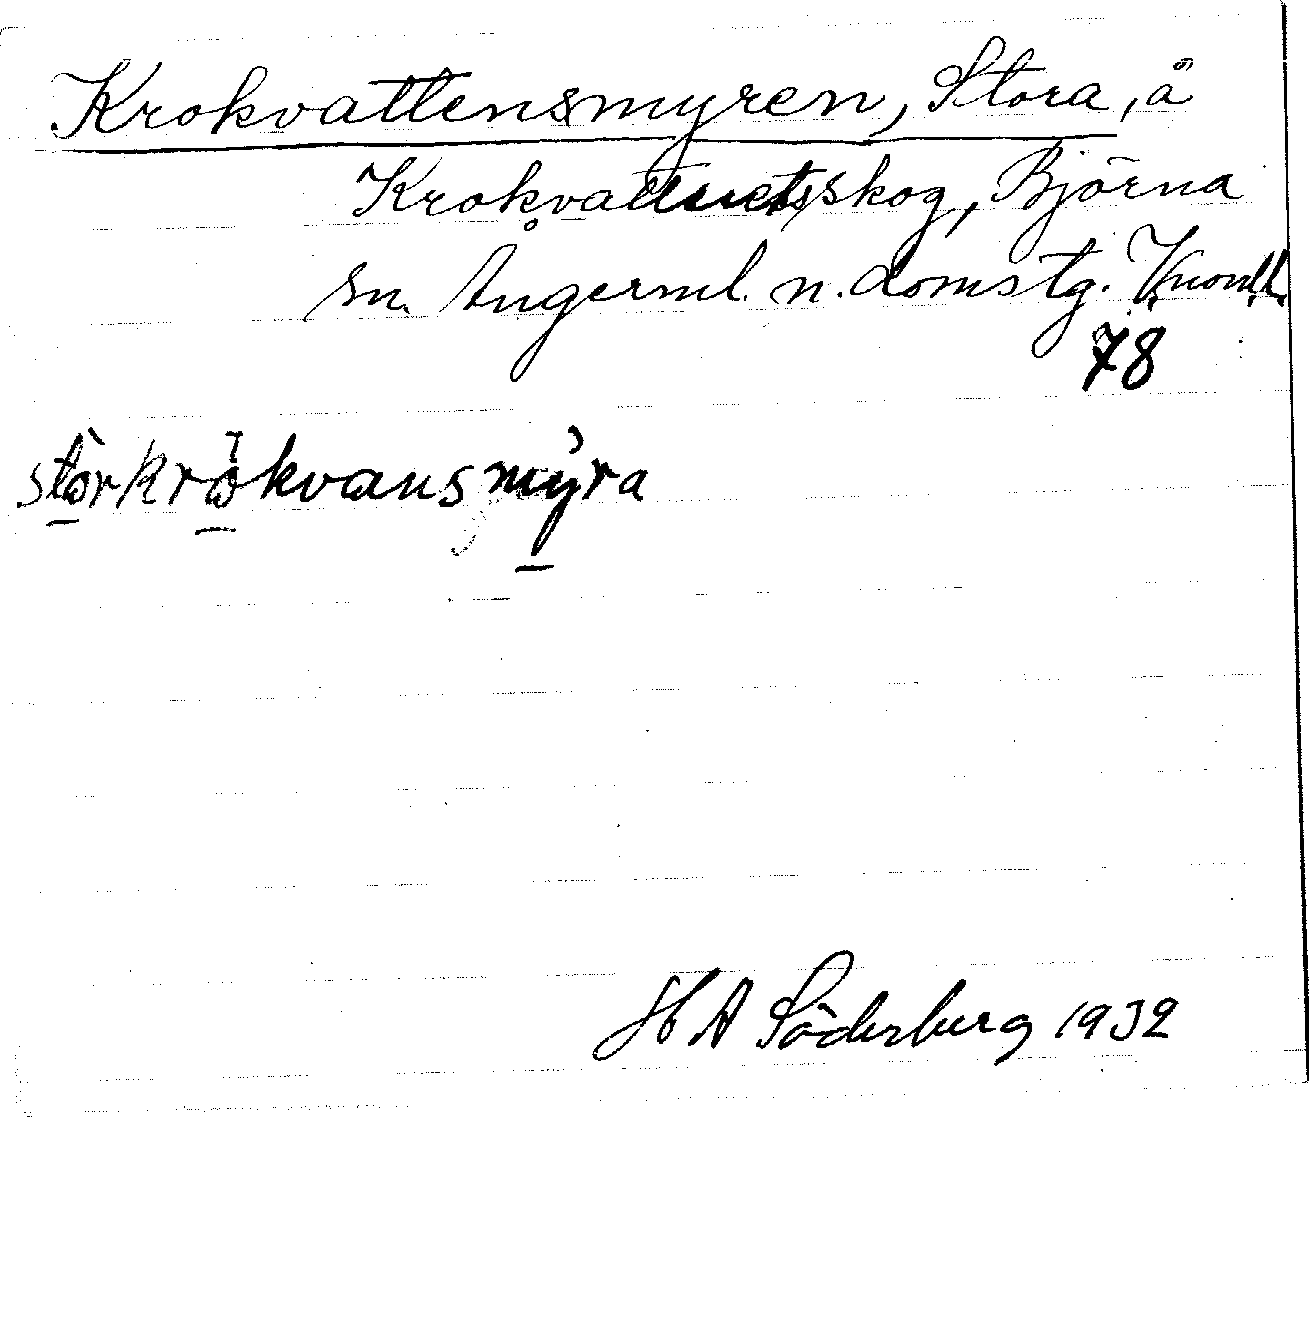 Krokvattensmyren, Stora, å
Krokvattnets skog, Björna
sn. Ångerml. n. domstg. Vnorrl.
78
stòrkrökvansmỳra
H A Söderberg 1932